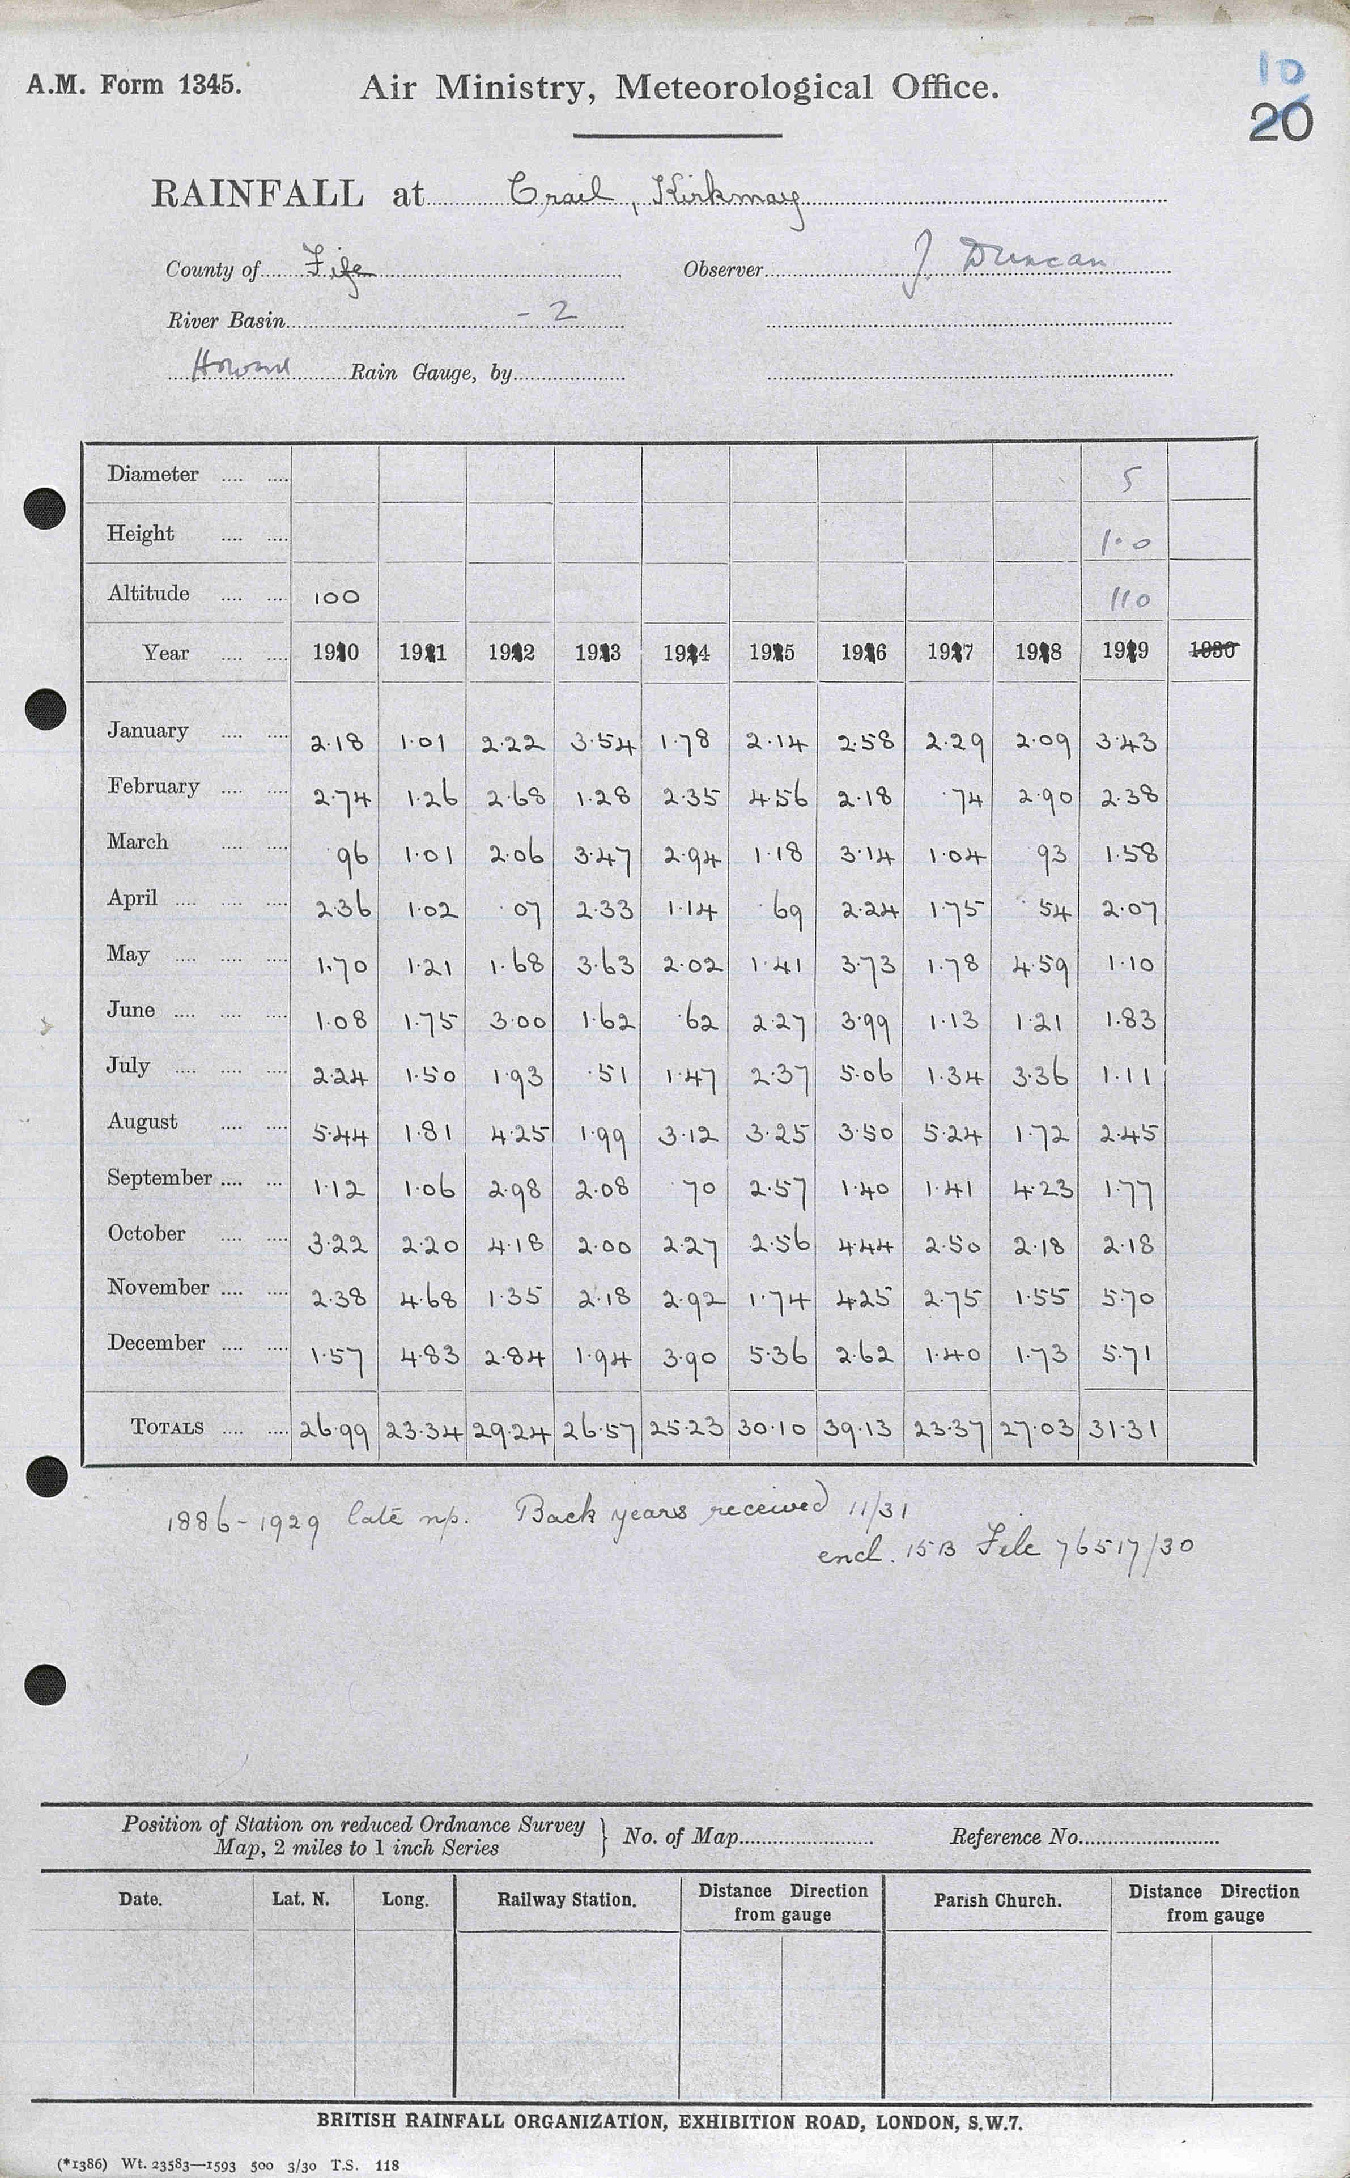 10
A.M. Form 1345. Air Ministry, Meteorological Office. 20
RAINFALL at Crail, Kirkmay
County of Fife Observer J. Duncan
River Basin - 2
Howard Rain Gauge, by
Diameter 5
Height 1·0
Altitude 100 110
Year 1910 1911 1912 1913 1914 1915 1916 1917 1918 1919 1930
January 2·18 1·01 2·22 3·54 1·78 2·14 2·58 2·29 2·09 3·43
February 2·74 1·26 2·68 1·28 2·35 4·56 2·18 ·74 2·90 2·38
March ·96 1·01 2·06 3·47 2·94 1·18 3·14 1·04 ·93 1·58
April 2·36 1·02 ·07 2·33 1·14 ·69 2·24 1·75 ·54 2·07
May 1·70 1·21 1·68 3·63 2·02 1·41 3·73 1·78 4·59 1·10
June 1·08 1·75 3·00 1·62 ·62 2·27 3·99 1·13 1·21 1·83
July 2·24 1·50 1·93 ·51 1·47 2·37 5·06 1·34 3·36 1·11
August 5·44 1·81 4·25 1·99 3·12 3·25 3·50 5·24 1·72 2·45
September 1·12 1·06 2·98 2·08 ·70 2·57 1·40 1·41 4·23 1·77
October 3·22 2·20 4·18 2·00 2·27 2·56 4·44 2·50 2·18 2·18
November 2·38 4·68 1·35 2·18 2·92 1·74 4·25 2·75 1·55 5·70
December 1·57 4·83 2·84 1·94 3·90 5·36 2·62 1·40 1·73 5·71
TOTALS 26·99 23·34 29·24 26·57 25·23 30·10 39·13 23·37 27·03 31·31
1886-1929 late np. Back years received 11/31
encl. 15B File 76517/30
Position of Station on reduced Ordnance Survey
Map, 2 miles to 1 inch Series } No. of Map Reference No.
Date. Lat. N. Long. Railway Station. Distance Direction from gauge Parish Church. Distance Direction from gauge
BRITISH RAINFALL ORGANIZATION, EXHIBITION ROAD, LONDON, S.W.7.
(*1386) Wt. 23583—1593 500 3/30 T.S. 118